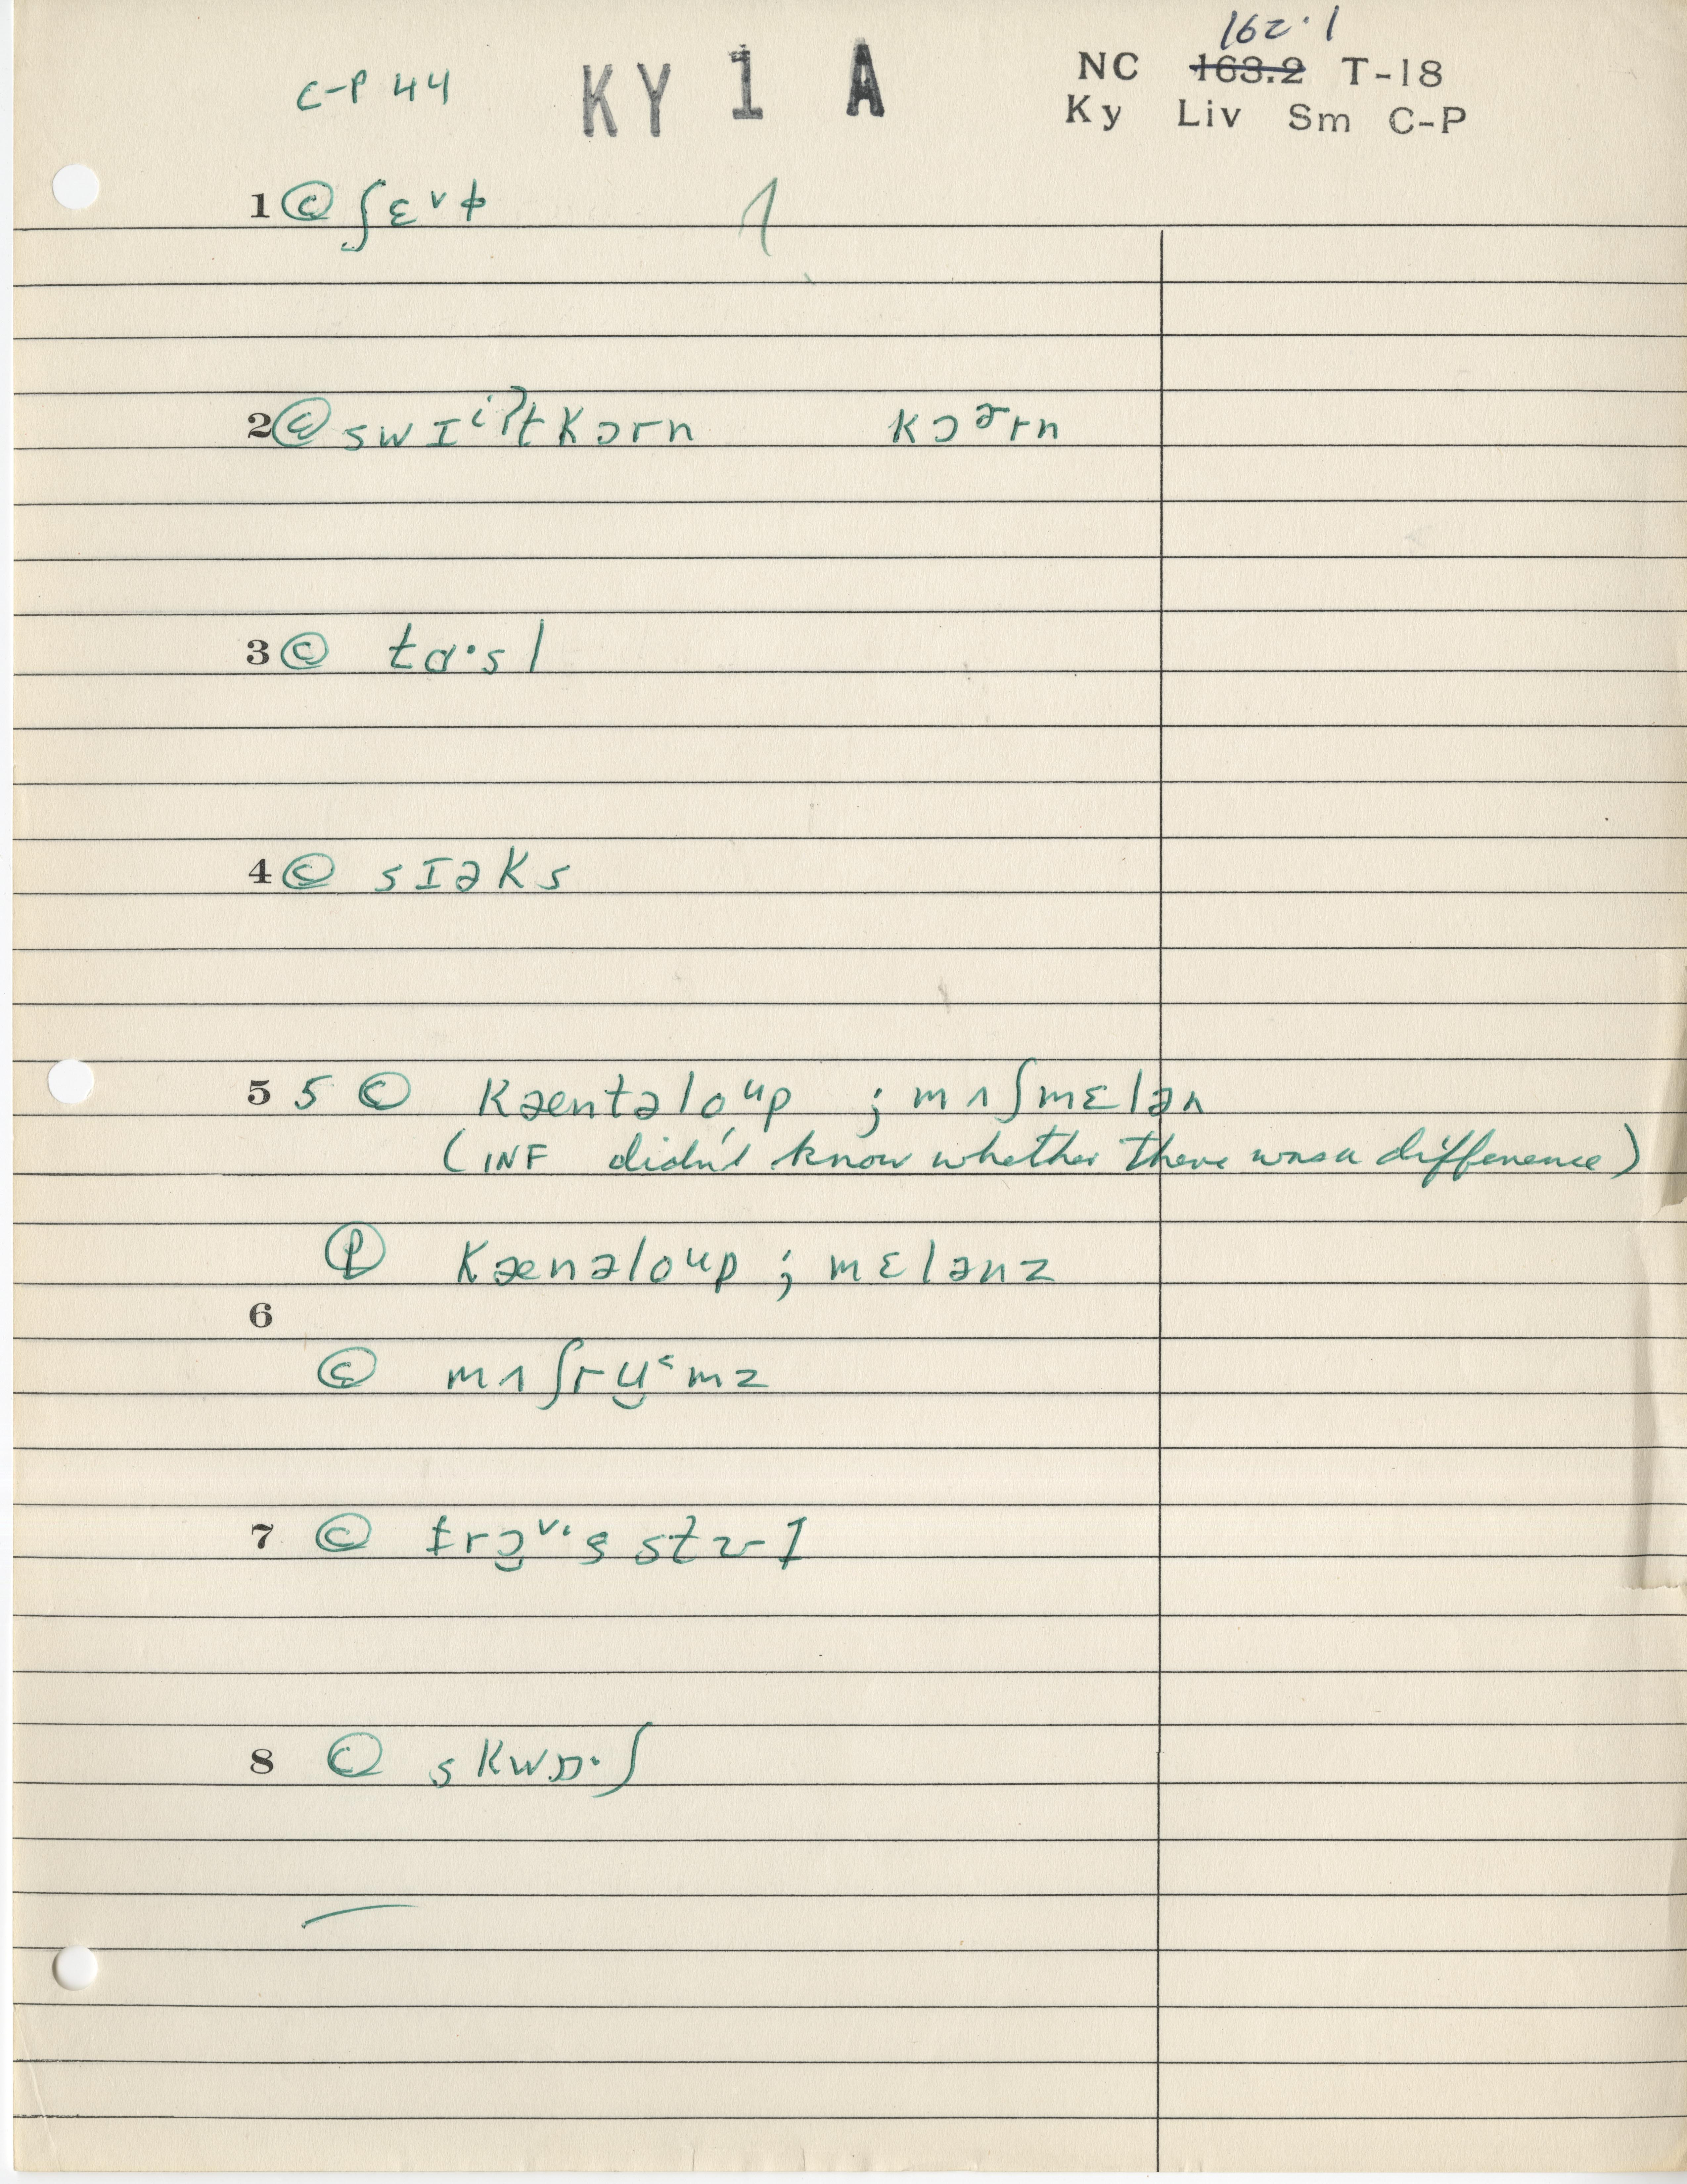 162.1
C-P 44 KY 1 A NC 163.2 T-18
Ky Liv Sm C-P
1 Ⓒ ʃɛ˅ɸ
2 Ⓒ swɪⁱˀtkɔrn kɔᵊrn
3 Ⓒ tɑ·sl
4 Ⓒ sɪəks
5 5 Ⓒ kæntəlo̗ᵘp ; mʌʃmɛlən
(INF didn't know whether there was a difference)
Ⓟ kænəloᵘp ; mɛlənz
6
Ⓒ mʌʃrṳ˂mz
7 Ⓒ
8 Ⓒ skwɒ·ʃ